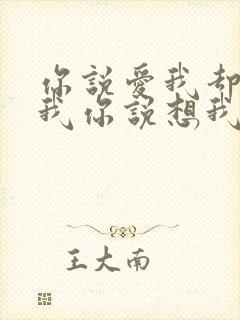 你說愛我却
我你說想我
王大南